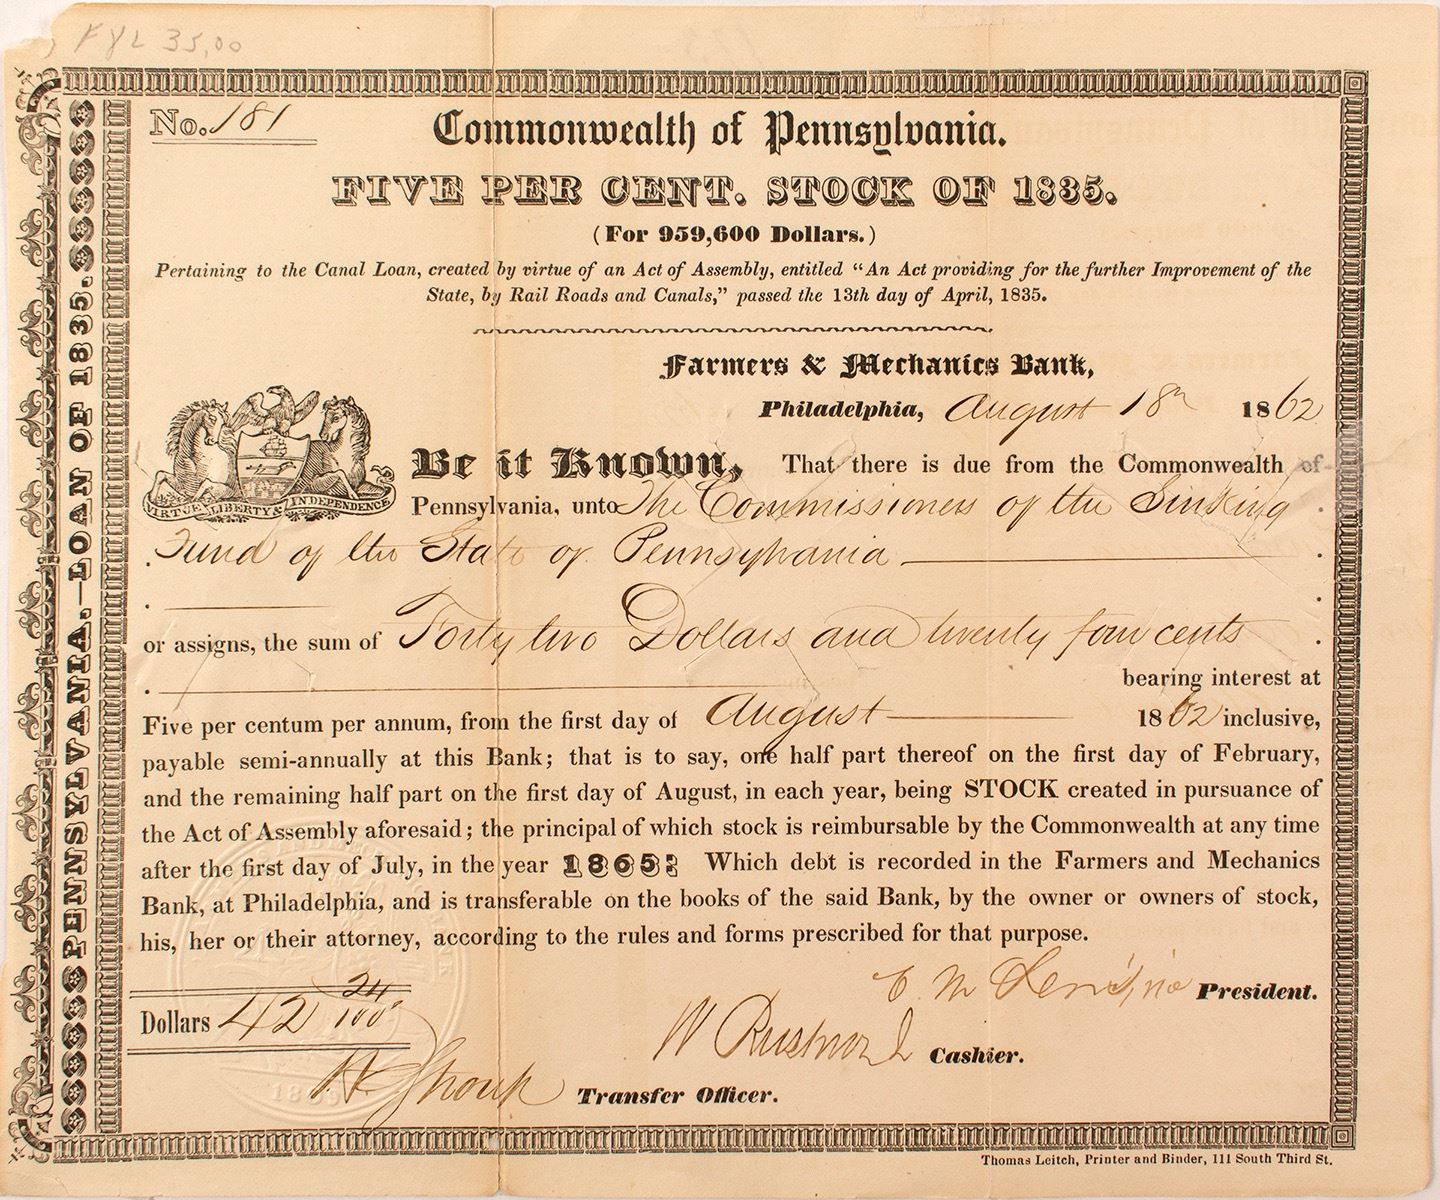 FYL 35,00
No. 181
Commonwealth of Pennsylvania.
FIVE PER CENT. STOCK OF 1835.
(For 959,600 Dollars.)
Pertaining to the Canal Loan, created by virtue of an Act of Assembly, entitled "An Act providing for the further Improvement of the
State, by Rail Roads and Canals," passed the 13th day of April, 1835.
Farmers & Mechanics Bank,
Philadelphia, August 18th 1862
VIRTUE, LIBERTY & INDEPENDENCE
Be it Known, That there is due from the Commonwealth of
Pennsylvania, unto The Commissioners of the Sinking
Fund of the State of Pennsylvania
or assigns, the sum of Forty two Dollars and twenty four cents
bearing interest at
Five per centum per annum, from the first day of August 1862 inclusive,
payable semi-annually at this Bank; that is to say, one half part thereof on the first day of February,
and the remaining half part on the first day of August, in each year, being STOCK created in pursuance of
the Act of Assembly aforesaid; the principal of which stock is reimbursable by the Commonwealth at any time
after the first day of July, in the year 1865: Which debt is recorded in the Farmers and Mechanics
Bank, at Philadelphia, and is transferable on the books of the said Bank, by the owner or owners of stock,
his, her or their attorney, according to the rules and forms prescribed for that purpose.
President.
Dollars 42 24/100
W Rushton J Cashier.
Transfer Officer.
Thomas Leitch, Printer and Binder, 111 South Third St.
PENNSYLVANIA.—LOAN OF 1835.